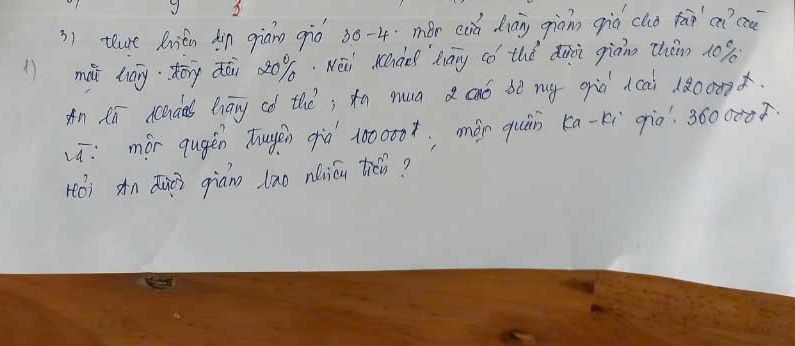 3) thực hiện dịp giảm giá 30-4. một cửa hàng giảm giá cho tất cả các
1) mặt hàng. đồng đều 20%. Nếu khách hàng có thẻ được giảm thêm 10%
An là khách hàng có thẻ, An mua 2 áo sơ my giá 1 cái 120000đ.
và: một quyển truyện giá 100000đ, một quần Ka-Ki giá. 360000đ.
Hỏi An được giảm bao nhiêu tiền?